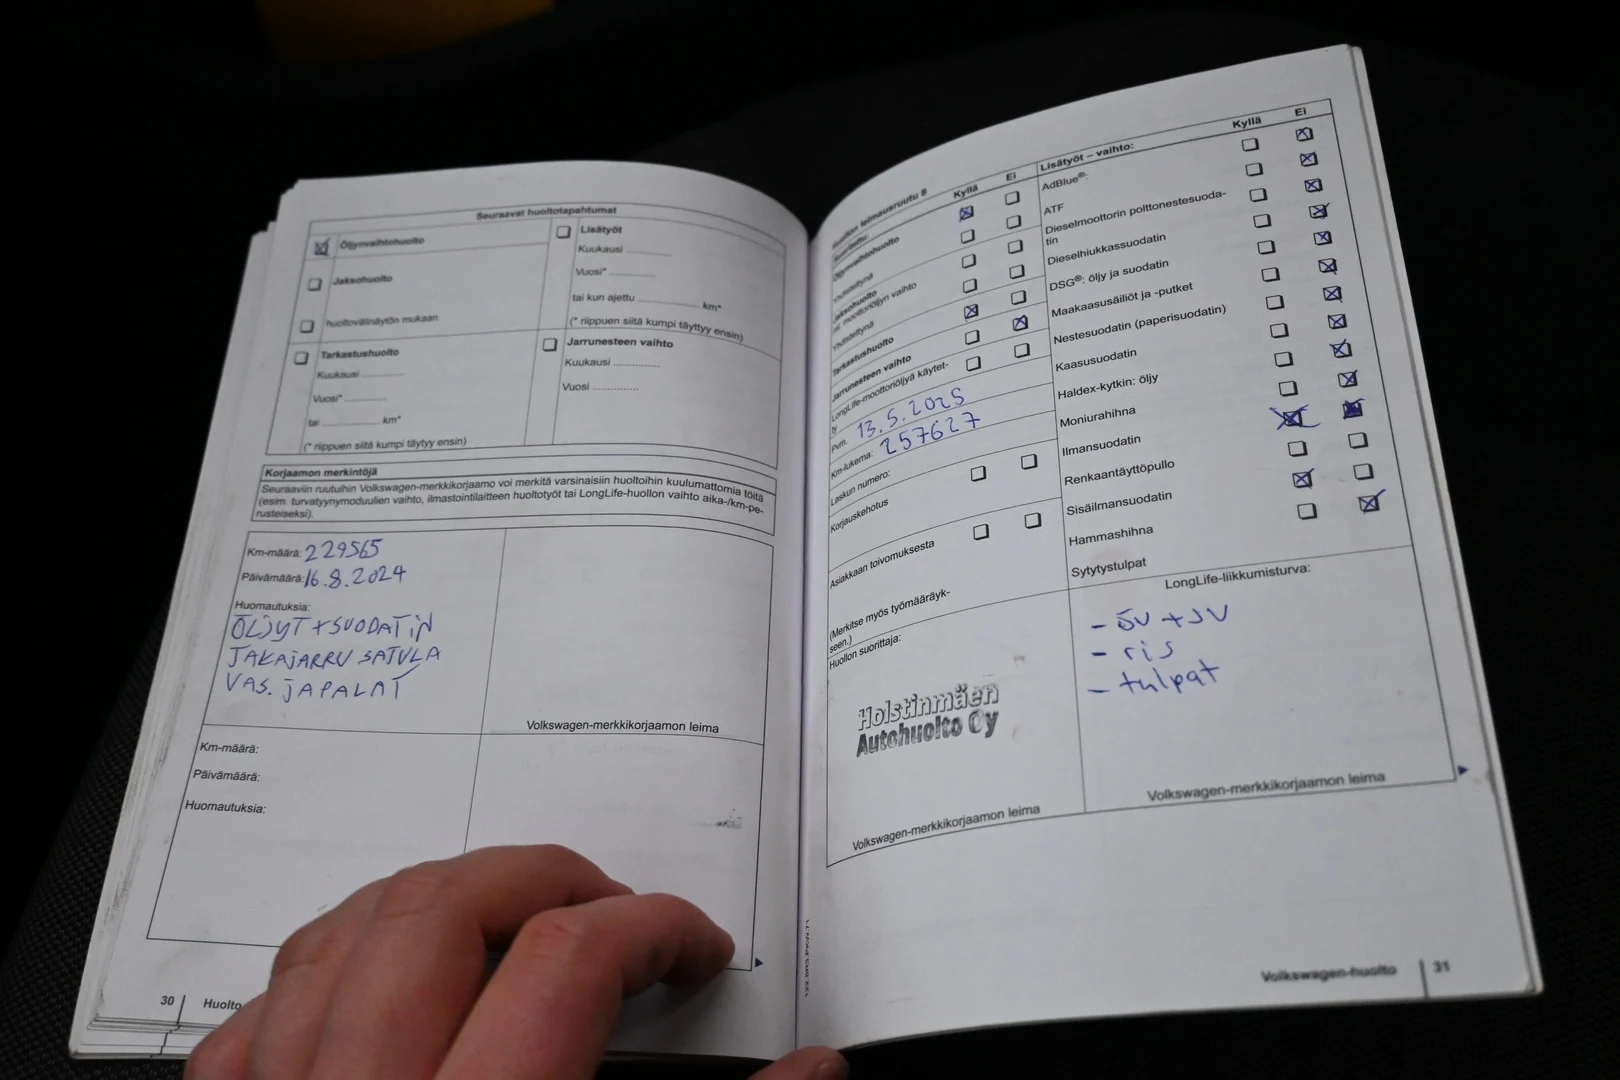 Seuraavat huoltotapahtumat
Öljynvaihtohuolto
Jaksohuolto
huoltovälinäytön mukaan
Tarkastushuolto
Kuukausi ............
Vuosi* ............
tai ............ km*
(* riippuen siitä kumpi täytyy ensin)
Lisätyöt
Kuukausi ............
Vuosi* ............
tai kun ajettu ............ km*
(* riippuen siitä kumpi täyttyy ensin)
Jarrunesteen vaihto
Kuukausi ............
Vuosi ............
Korjaamon merkintöjä
Seuraaviin ruutuihin Volkswagen-merkkikorjaamo voi merkitä varsinaisiin huoltoihin kuulumattomia töitä
(esim. turvatyynymoduulien vaihto, ilmastointilaitteen huoltotyöt tai LongLife-huollon vaihto aika-/km-pe-
rusteiseksi).
Km-määrä: 229565
Päivämäärä: 16.8.2024
Huomautuksia:
ÖLJYT + SUODATIN
TAKAJARRU SATULA
VAS. JA PALAT
Volkswagen-merkkikorjaamon leima
Km-määrä:
Päivämäärä:
Huomautuksia:
30 Huolto
Huollon leimausruutu 8
Kyllä Ei
Öljynvaihtohuolto
Yhdistettynä
Jaksohuolto
moottoriöljyn vaihto
Yhdistettynä
Tarkastushuolto
Jarrunesteen vaihto
LongLife-moottoriöljyä käytet-
ty
Pvm. 13.5.2025
Km-lukema: 257627
Laskun numero:
Korjauskehotus
Asiakkaan toivomuksesta
(Merkitse myös työmääräyk-
seen.)
Huollon suorittaja:
Holstinmäen
Autohuolto Oy
Volkswagen-merkkikorjaamon leima
Lisätyöt – vaihto: Kyllä Ei
AdBlue®:
ATF
Dieselmoottorin polttonestesuoda-
tin
Dieselhiukkassuodatin
DSG®: öljy ja suodatin
Maakaasusäiliöt ja -putket
Nestesuodatin (paperisuodatin)
Kaasusuodatin
Haldex-kytkin: öljy
Moniurahihna
Ilmansuodatin
Renkaantäyttöpullo
Sisäilmansuodatin
Hammashihna
Sytytystulpat
LongLife-liikkumisturva:
- öv + sv
- ris
- tulpat
Volkswagen-merkkikorjaamon leima
Volkswagen-huolto 31